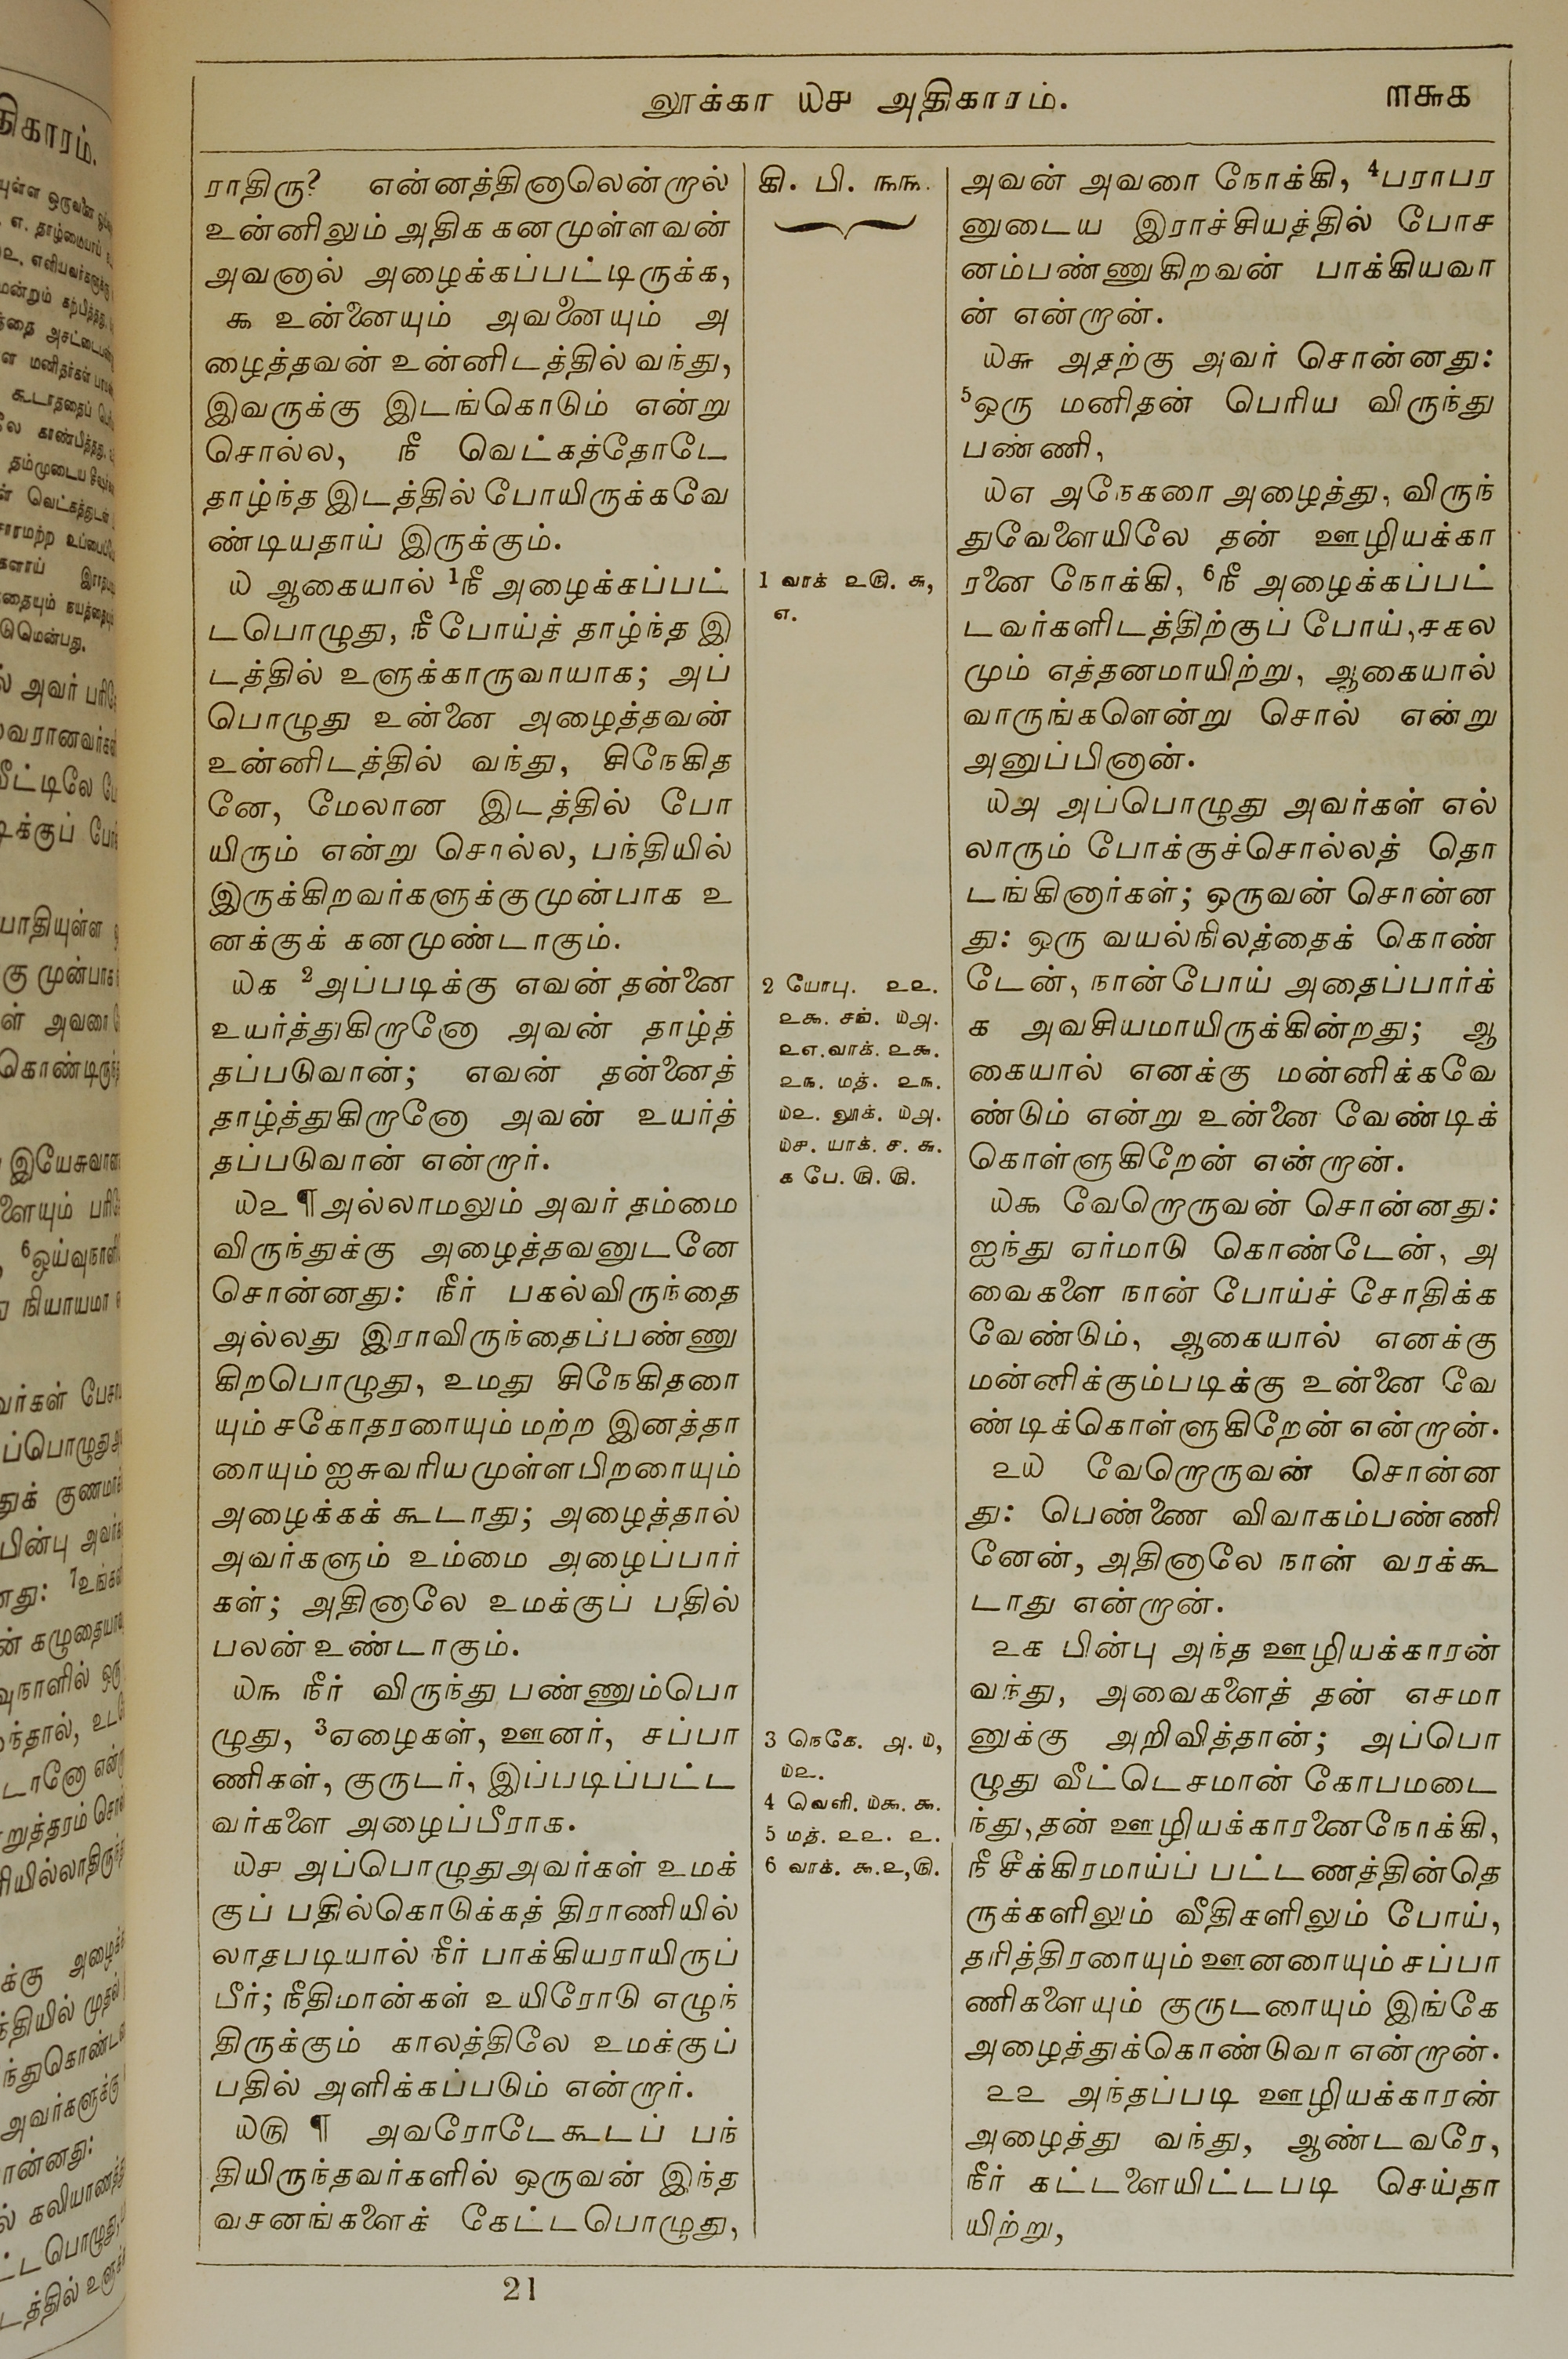 லூக்கா ௰௪ அதிகாரம். ௱௬௧
ராதிரு? என்னத்தினாலென்றால்
உன்னிலும் அதிக கனமுள்ளவன்
அவனால் அழைக்கப்பட்டிருக்க,
௯ உன்னையும் அவனையும் அ
ழைத்தவன் உன்னிடத்தில் வந்து,
இவருக்கு இடங்கொடும் என்று
சொல்ல, நீ வெட்கத்தோடே
தாழ்ந்த இடத்தில் போயிருக்கவே
ண்டியதாய் இருக்கும்.
௰ ஆகையால் 1நீ அழைக்கப்பட்
டபொழுது, நீ போய்த் தாழ்ந்த இ
டத்தில் உளுக்காருவாயாக; அப்
பொழுது உன்னை அழைத்தவன்
உன்னிடத்தில் வந்து, சிநேகித
னே, மேலான இடத்தில் போ
யிரும் என்று சொல்ல, பந்தியில்
இருக்கிறவர்களுக்குமுன்பாக உ
னக்குக் கனமுண்டாகும்.
௰௧ 2அப்படிக்கு எவன் தன்னை
உயர்த்துகிறானோ அவன் தாழ்த்
தப்படுவான்; எவன் தன்னைத்
தாழ்த்துகிறானோ அவன் உயர்த்
தப்படுவான் என்றார்.
௰௨ ¶ அல்லாமலும் அவர் தம்மை
விருந்துக்கு அழைத்தவனுடனே
சொன்னது: நீர் பகல்விருந்தை
அல்லது இராவிருந்தைப்பண்ணு
கிறபொழுது, உமது சிநேகிதரை
யும் சகோதரரையும் மற்ற இனத்தா
ரையும் ஐசுவரியமுள்ள பிறரையும்
அழைக்கக் கூடாது; அழைத்தால்
அவர்களும் உம்மை அழைப்பார்
கள்; அதினாலே உமக்குப் பதில்
பலன் உண்டாகும்.
௰௩ நீர் விருந்து பண்ணும்பொ
ழுது, 3ஏழைகள், ஊனர், சப்பா
ணிகள், குருடர், இப்படிப்பட்ட
வர்களை அழைப்பீராக.
௰௪ அப்பொழுது அவர்கள் உமக்
குப் பதில்கொடுக்கத் திராணியில்
லாதபடியால் நீர் பாக்கியராயிருப்
பீர்; நீதிமான்கள் உயிரோடு எழுந்
திருக்கும் காலத்திலே உமக்குப்
பதில் அளிக்கப்படும் என்றார்.
௰௫ ¶ அவரோடேகூடப் பந்
தியிருந்தவர்களில் ஒருவன் இந்த
வசனங்களைக் கேட்டபொழுது,
கி. பி. ௩௩.
1 வாக் ௨௫. ௬,
௭.
2 யோபு. ௨௨.
௨௯. சங். ௰௮.
௨௭. வாக். ௨௯.
௨௩. மத். ௨௩.
௰௨. லூக். ௰௮.
௰௪. யாக். ௪. ௬.
௧ பே. ௫. ௫.
3 நெகே. ௮. ௰,
௰௨.
4 வெளி. ௰௯. ௯.
5 மத். ௨௨. ௨.
6 வாக். ௯.௨,௫.
அவன் அவரை நோக்கி, 4பராபர
னுடைய இராச்சியத்தில் போச
னம்பண்ணுகிறவன் பாக்கியவா
ன் என்றான்.
௰௬ அதற்கு அவர் சொன்னது:
5ஒரு மனிதன் பெரிய விருந்து
பண்ணி,
௰௭ அநேகரை அழைத்து, விருந்
துவேளையிலே தன் ஊழியக்கா
ரனை நோக்கி, 6நீ அழைக்கப்பட்
டவர்களிடத்திற்குப் போய், சகல
மும் எத்தனமாயிற்று, ஆகையால்
வாருங்களென்று சொல் என்று
அனுப்பினான்.
௰௮ அப்பொழுது அவர்கள் எல்
லாரும் போக்குச்சொல்லத் தொ
டங்கினார்கள்; ஒருவன் சொன்ன
து: ஒரு வயல்நிலத்தைக் கொண்
டேன், நான்போய் அதைப்பார்க்
க அவசியமாயிருக்கின்றது; ஆ
கையால் எனக்கு மன்னிக்கவே
ண்டும் என்று உன்னை வேண்டிக்
கொள்ளுகிறேன் என்றான்.
௰௯ வேறொருவன் சொன்னது:
ஐந்து ஏர்மாடு கொண்டேன், அ
வைகளை நான் போய்ச் சோதிக்க
வேண்டும், ஆகையால் எனக்கு
மன்னிக்கும்படிக்கு உன்னை வே
ண்டிக்கொள்ளுகிறேன் என்றான்.
௨௰ வேறொருவன் சொன்ன
து: பெண்ணை விவாகம்பண்ணி
னேன், அதினாலே நான் வரக்கூ
டாது என்றான்.
௨௧ பின்பு அந்த ஊழியக்காரன்
வந்து, அவைகளைத் தன் எசமா
னுக்கு அறிவித்தான்; அப்பொ
ழுது வீட்டெசமான் கோபமடை
ந்து, தன் ஊழியக்காரனைநோக்கி,
நீ சீக்கிரமாய்ப் பட்டணத்தின்தெ
ருக்களிலும் வீதிகளிலும் போய்,
தரித்திரரையும் ஊனரையும் சப்பா
ணிகளையும் குருடரையும் இங்கே
அழைத்துக்கொண்டுவா என்றான்.
௨௨ அந்தப்படி ஊழியக்காரன்
அழைத்து வந்து, ஆண்டவரே,
நீர் கட்டளையிட்டபடி செய்தா
யிற்று,
21